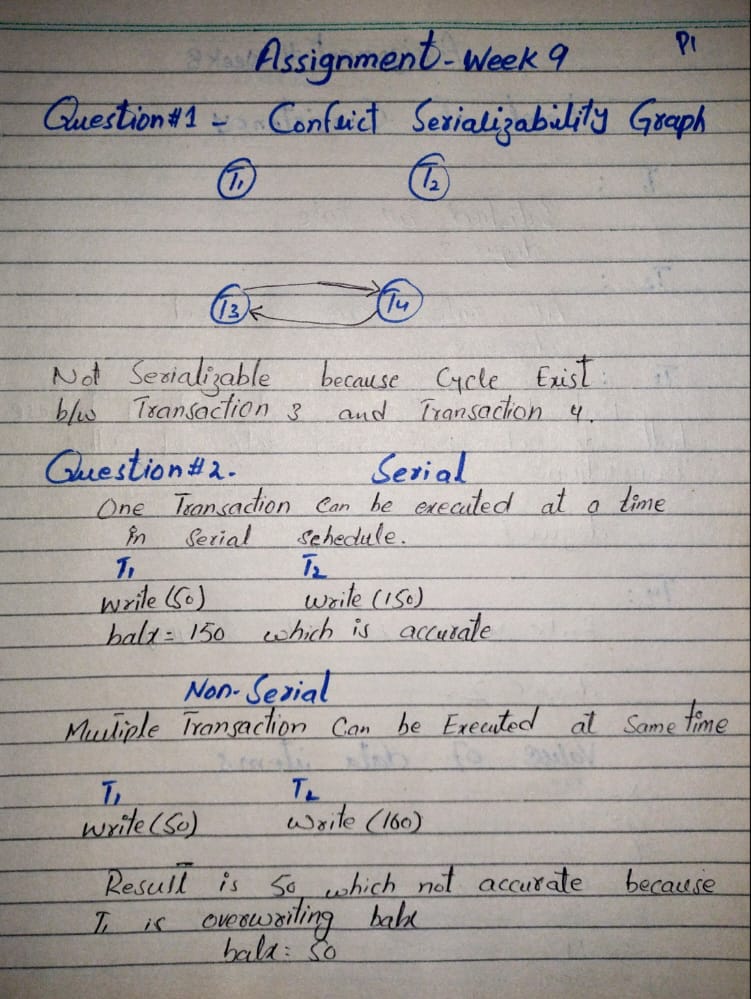 P1
Assignment - Week 9
Question#1 - Conflict Serializability Graph
T1 T2
T3 T4
Not Serializable because Cycle Exist
b/w Transaction 3 and Transaction 4.
Question#2. Serial
One Transaction Can be executed at a time
in Serial schedule.
T1 T2
write(50) write(150)
balx = 150 which is accurate
Non-Serial
Multiple Transaction Can be Executed at Same time
T1 T2
write(50) write(160)
Result is 50 which not accurate because
T1 is overwriting balx
balx = 50